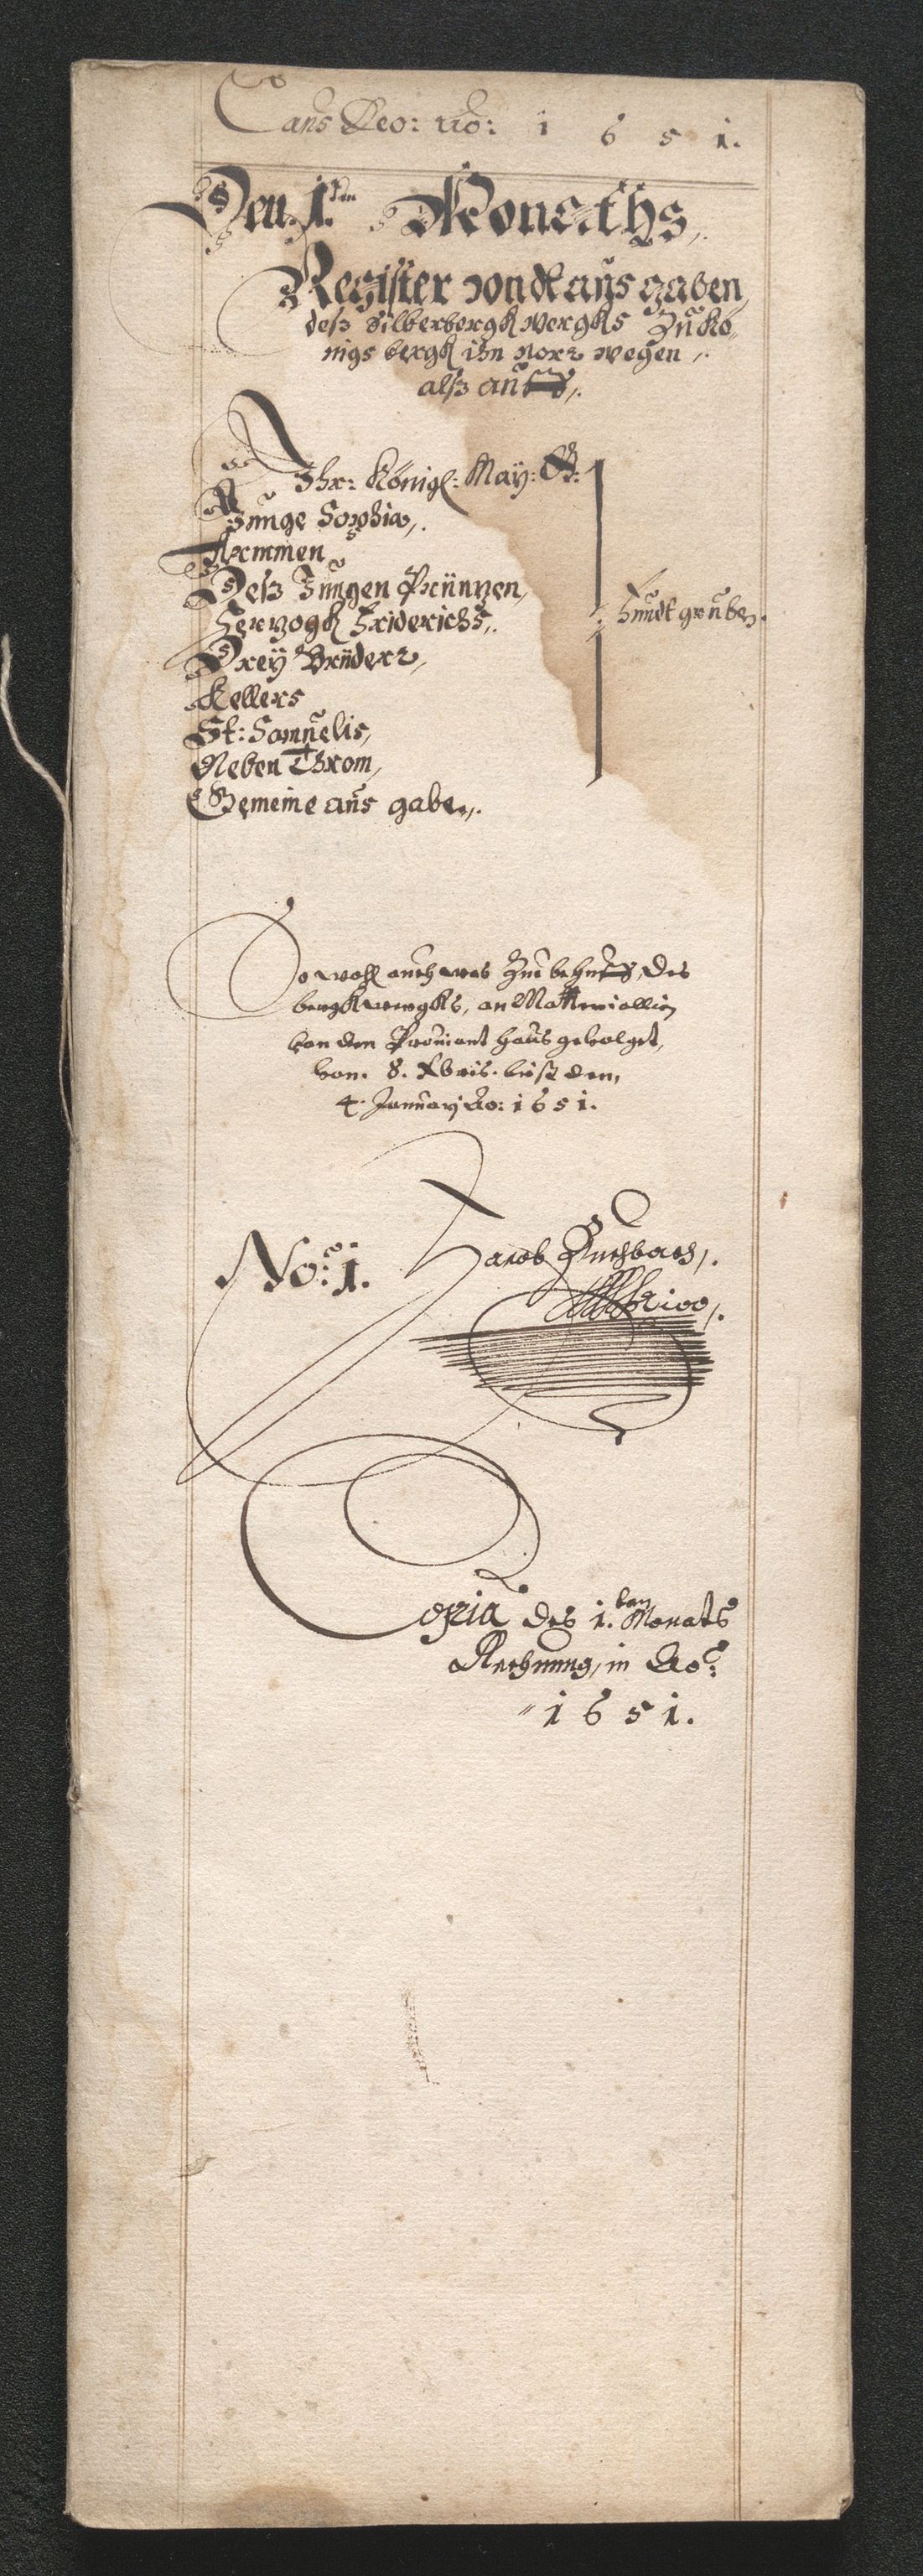 Laus Deo: Ao: 1 6 5 1.
Den 1.ten Monaths,
Register vndt ausgaben,
deß Silberbergkwergks Zu Kö„
nigsbergk ihn Norwegen,
alß auff,
Ihr: Königl: May: G:
Junge Sophia,
Armmen
Deß Jungen Printzen,
Hertzogk Friderichs,
Drey Brüder,
Kellers
St: Samuelis,
Neben Throm,
Fundtgruben.
Gemeine ausgaben,
So wohl auch was Zue behuff, des
bergkwergks, an Matteriallien
von dem Proviant Haus gevolget,
von. 8. Xbris. biß den,
4. January Ao: 1651.
No: 1.
Jacob
Copia des 1.ten Monats
Rechnung, in Ao:
1 6 5 1.